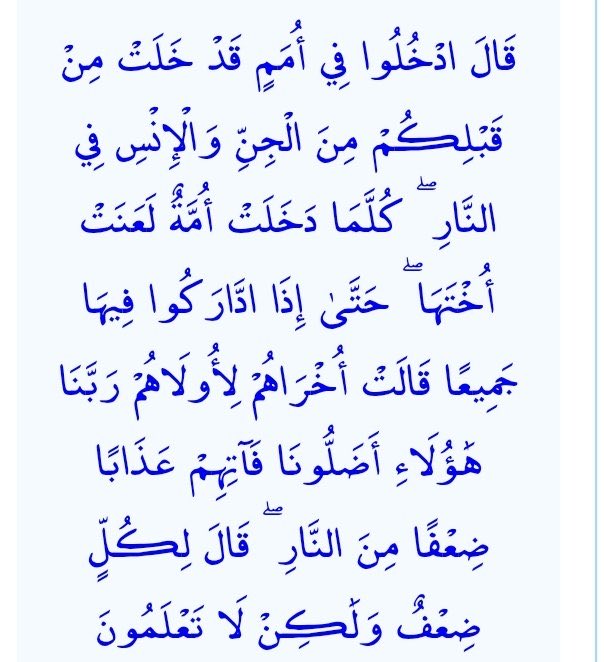 قَالَ ادْخُلُوا فِي أُمَمٍ قَدْ خَلَتْ مِنْ
قَبْلِكُمْ مِنَ الْجِنِّ وَالْإِنْسِ فِي
النَّارِ ۖ كُلَّمَا دَخَلَتْ أُمَّةٌ لَعَنَتْ
أُخْتَهَا ۖ حَتَّىٰ إِذَا ادَّارَكُوا فِيهَا
جَمِيعًا قَالَتْ أُخْرَاهُمْ لِأُولَاهُمْ رَبَّنَا
هَٰؤُلَاءِ أَضَلُّونَا فَآتِهِمْ عَذَابًا
ضِعْفًا مِنَ النَّارِ ۖ قَالَ لِكُلٍّ
ضِعْفٌ وَلَٰكِنْ لَا تَعْلَمُونَ